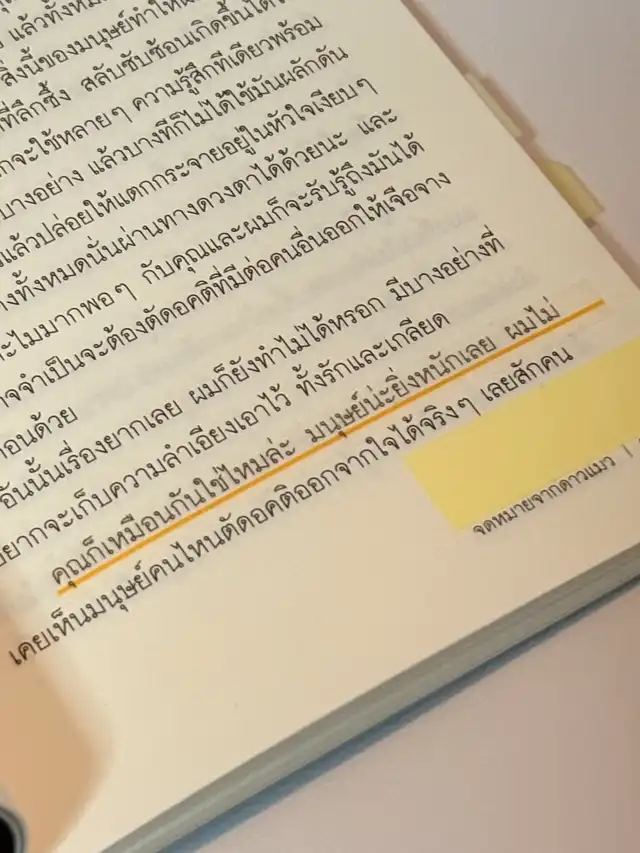 แล้วทั้งหม
สิ่งนี้ของมนุษย์ทำให้
ที่ลึกซึ้ง สลับซับซ้อนเกิดขึ้นได้
จะใช้หลายๆ ความรู้สึกทีเดียวพร้อม
บางอย่าง แล้วบางทีก็ไม่ได้ใช้มันผลักดัน
แล้วปล่อยให้แตกกระจายอยู่ในหัวใจเงียบๆ
ทั้งหมดนั่นผ่านทางดวงตาได้ด้วยนะ และ
ไม่มากพอๆ กับคุณและผมก็จะรับรู้ถึงมันได้
จำเป็นจะต้องตัดอคติที่มีต่อคนอื่นออกให้เจือจาง
อนด้วย
อันนั้นเรื่องยากเลย ผมก็ยังทำไม่ได้หรอก มีบางอย่างที่
อยากจะเก็บความลำเอียงเอาไว้ ทั้งรักและเกลียด
คุณก็เหมือนกันใช่ไหมล่ะ มนุษย์น่ะยิ่งหนักเลย ผมไม่
เคยเห็นมนุษย์คนไหนตัดอคติออกจากใจได้จริงๆ เลยสักคน
จดหมายจากดาวแมว |